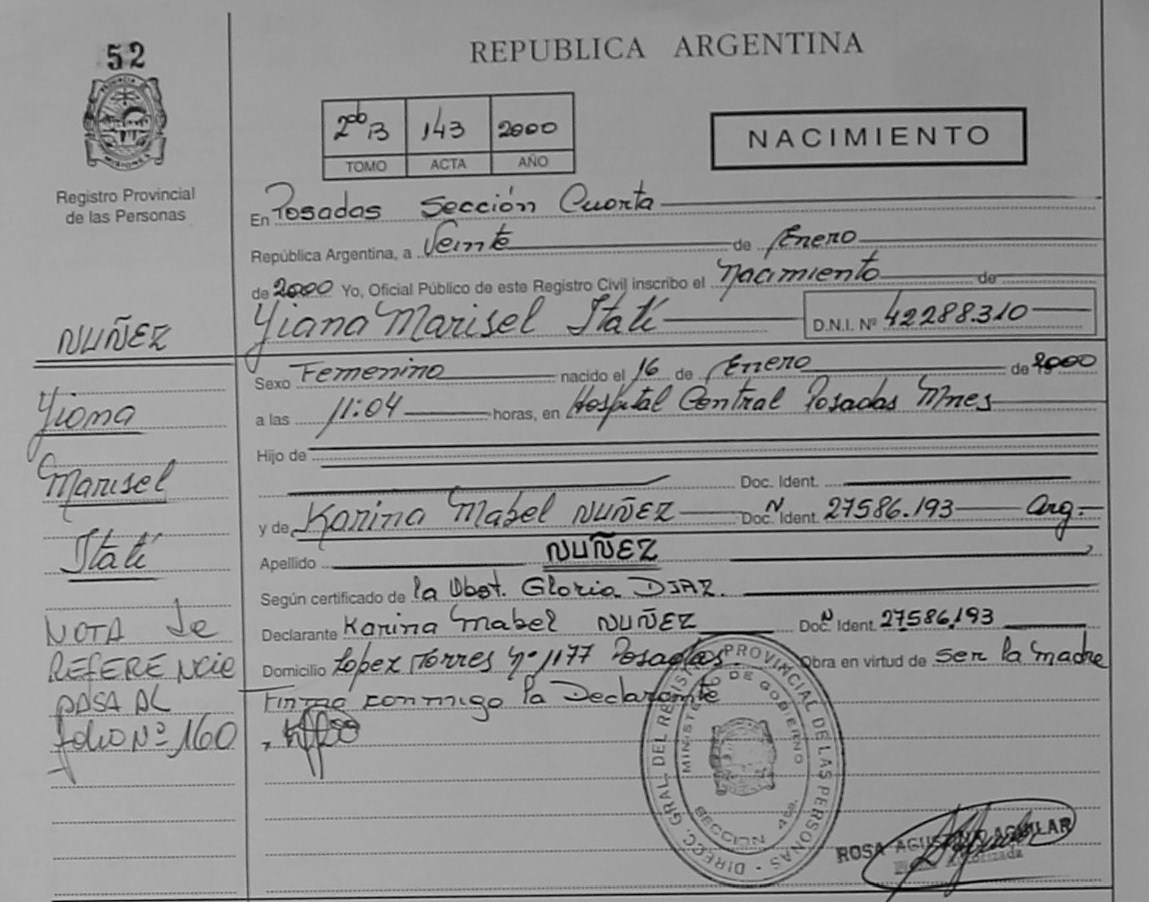 52
REPUBLICA ARGENTINA
PROVINCIA
MISIONES
2do B 143 2000
TOMO ACTA AÑO
NACIMIENTO
Registro Provincial
de las Personas
En Posadas Sección Cuarta
República Argentina, a Veinte de Enero
de 2000 Yo, Oficial Público de este Registro Civil inscribo el Nacimiento de
Yiana Marisel Itatí D.N.I. Nº 42288.310
NUÑEZ
Sexo Femenino nacido el 16 de Enero de 2000
Yiana
a las 11:04 horas, en Hospital Central Posadas Mnes
Hijo de
Marisel
Doc. Ident.
y de Karina Mabel NUÑEZ Doc. N Ident. 27586.193 Arg.
Itatí
Apellido NUÑEZ
Según certificado de la Obst. Gloria DIAZ.
NOTA de
REFERENCIA
PASA AL
folio Nº 160
Declarante Karina Mabel NUÑEZ Doc. N Ident. 27586.193
Domicilio Lopez Torres Nº 1177 Posadas. Obra en virtud de ser la madre
Firma conmigo la Declarante
DIRECC. GRAL. DEL REGISTRO PROVINCIAL DE LAS PERSONAS
MINISTERIO DE GOBIERNO
SECCION 4ta.
ROSA AGUSTINO AGUILAR
Autorizada